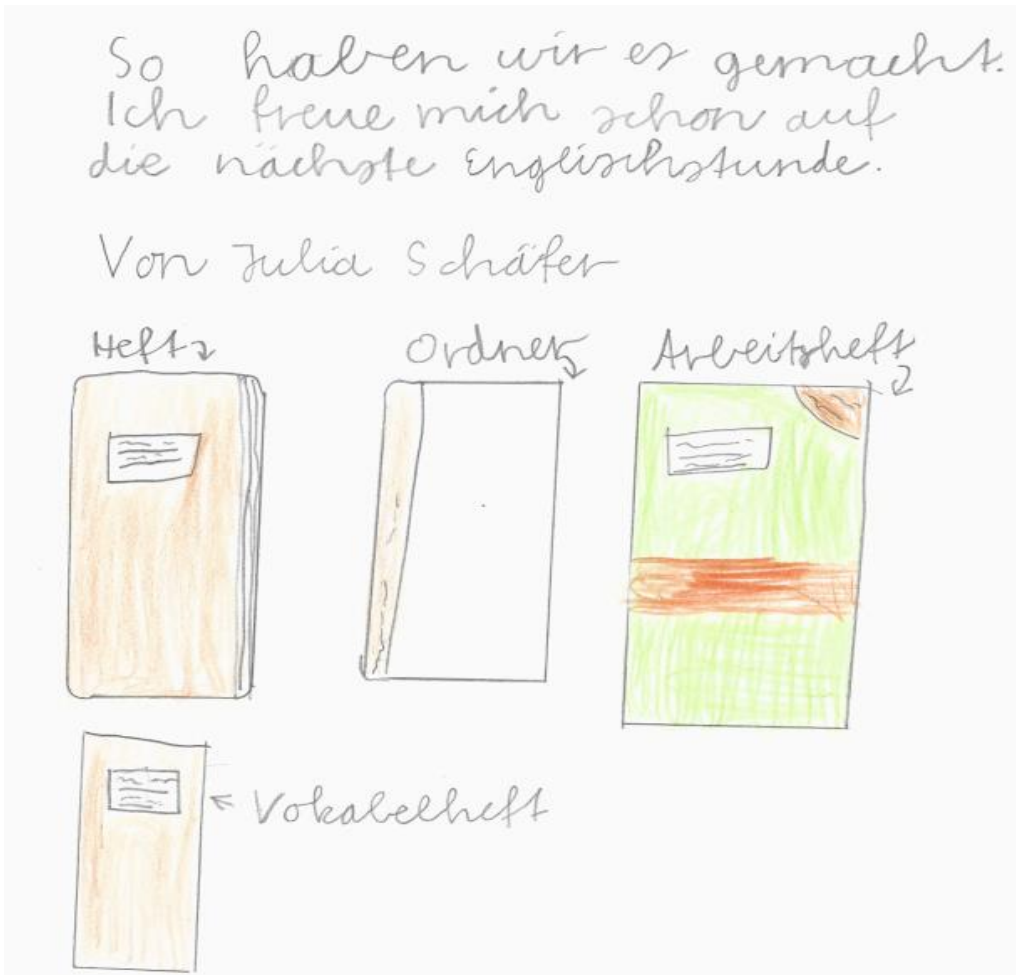 So haben wir es gemacht.
Ich freue mich schon auf
die nächste Englischstunde.
Von Julia Schäfer
Heft
Ordner
Arbeitsheft
Vokabelheft